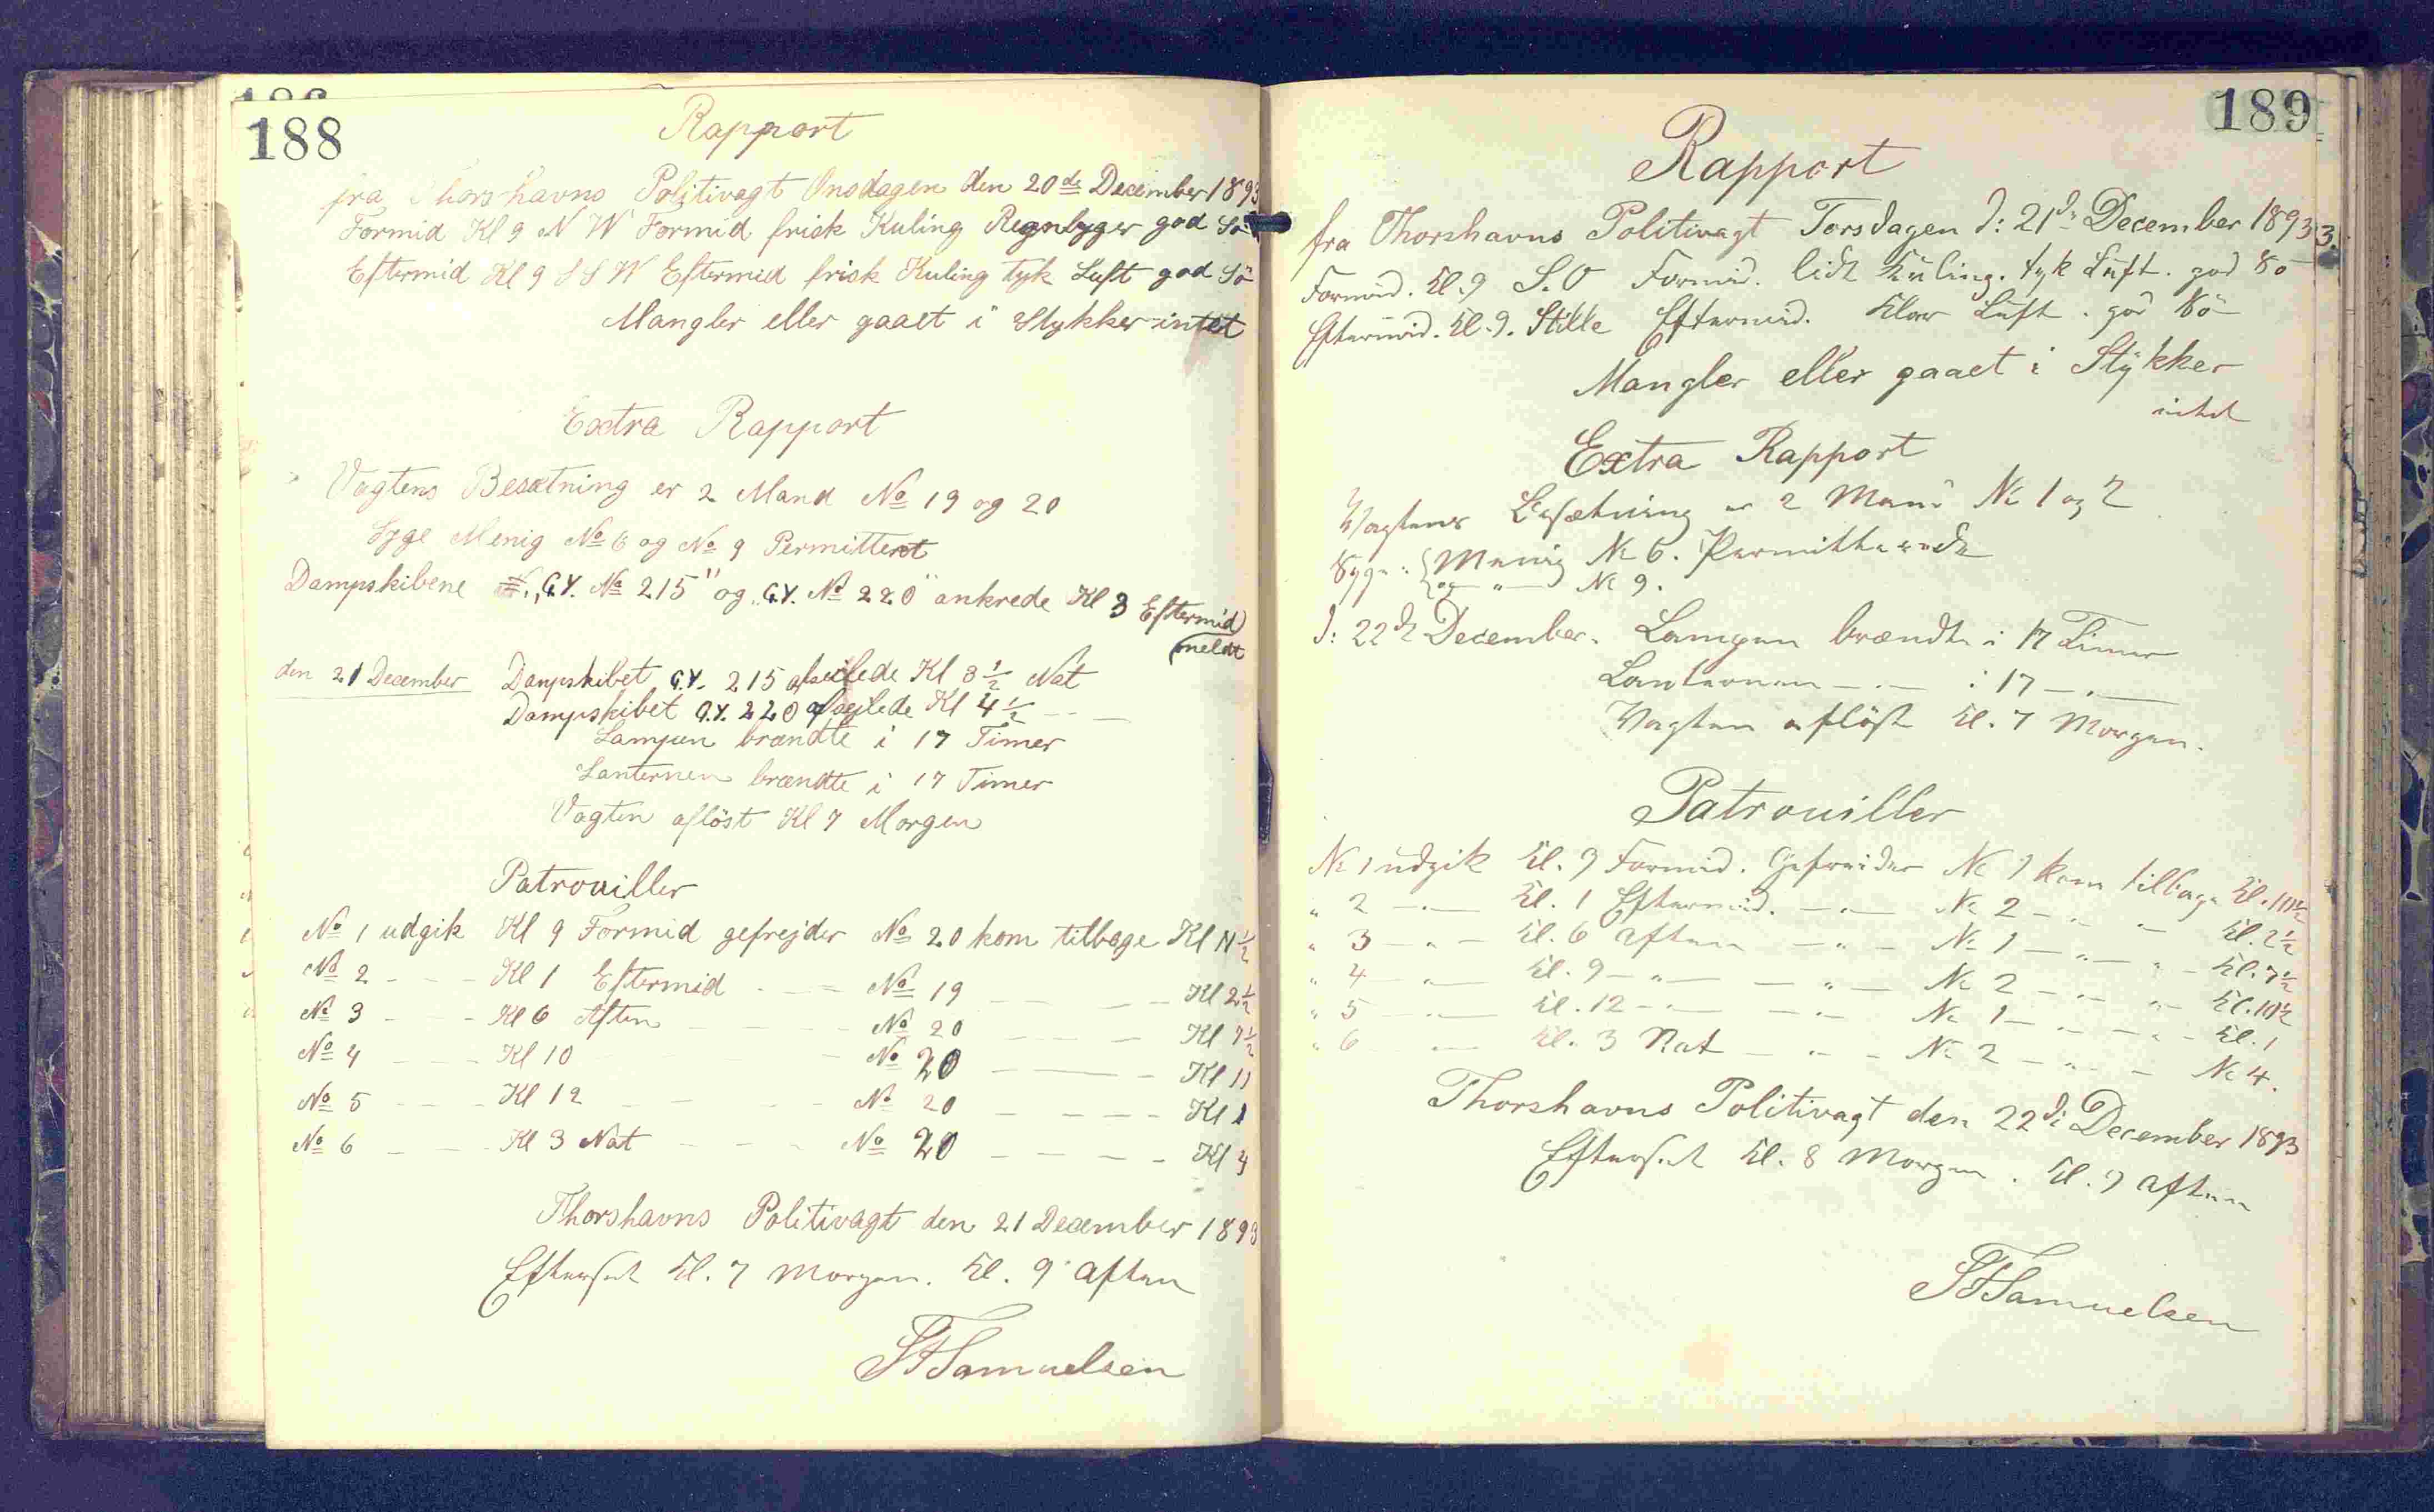 188
Rapport
fra Thorshavns Politivagt Onsdagen den 20de December 1893
Formid Kl 9 N W Formid frisk Kuling Regnbyger god Sö
Eftermid Kl 9 S S W Eftermid frisk Kuling tyk Luft god Sö
Mangler eller gaaet i Stykker intet
Extra Rapport
Vagtens Besætning er 2 Mand No 19 og 20
Syge Menig No 6 og No 9 Permitteret
Dampskibene „G.Y. No 215" og „G.Y. No 220" ankrede Kl 3 Eftermid
meldt
den 21 December Dampskibet G.Y. 215 afseilede Kl 3½ Nat
Dampskibet G.Y. 220 afseilede Kl 4½ - -
Lampen brændte i 17 Timer
Lanternen brændte i 17 Timer
Vagten aflöst Kl 7 Morgen
Patrouiller
No 1 udgik Kl 9 Formid gefrejder No 20 kom tilbage Kl 11½
No 2 - - - Kl 1 Eftermid - - No 19 - - - Kl 2½
No 3 - - - Kl 6 Aften - - - No 20 - - - Kl 7½
No 4 - - - Kl 10 - No 20 - - - Kl 11
No 5 - - - Kl 12 - - - No 20 - - - - Kl 1
No 6 - - - Kl 3 Nat - - - No 20 - - - - Kl 4
Thorshavns Politivagt den 21 December 1893
Efterset Kl. 7 Morgen. Kl. 9 Aften
Samuelsen
189
Rapport
fra Thorshavns Politivagt Torsdagen d: 21de December 1893
Formid. Kl. 9 S.O Formid. lidt Kuling. tyk Luft. god Sö
Eftermid. Kl. 9. Stille Eftermid. Klar Luft. god Sö
Mangler eller gaaet i Stykker
intet
Extra Rapport
Vagtens Besætning er 2 Mand No 1 og 2
Syge: { Menig No 6. Permitterede
og " — No 9.
d: 22de December. Lampen brændte i 17 Timer
Lanternen — " — i 17 — " —
Vagten aflöst Kl. 7 Morgen.
Patrouiller
No 1 udgik Kl. 9 Formid. Gefreider No 1 kom tilbage Kl. 10½
" 2 — " — Kl. 1 Eftermid. — " — No 2 — " " — Kl. 2½
" 3 — " — Kl. 6 Aften — " — No 1 — " — " — Kl. 7½
" 4 — " — Kl. 9 — " — — " — No 2 — " — " — Kl. 10½
" 5 — " — Kl. 12 — " — — " — No 1 — " — " — Kl. 1
" 6 — " — Kl. 3 Nat — " — No 2 — " — No 4.
Thorshavns Politivagt den 22de December 1893
Efterset Kl. 8 Morgen. Kl. 9 Aften
Samuelsen